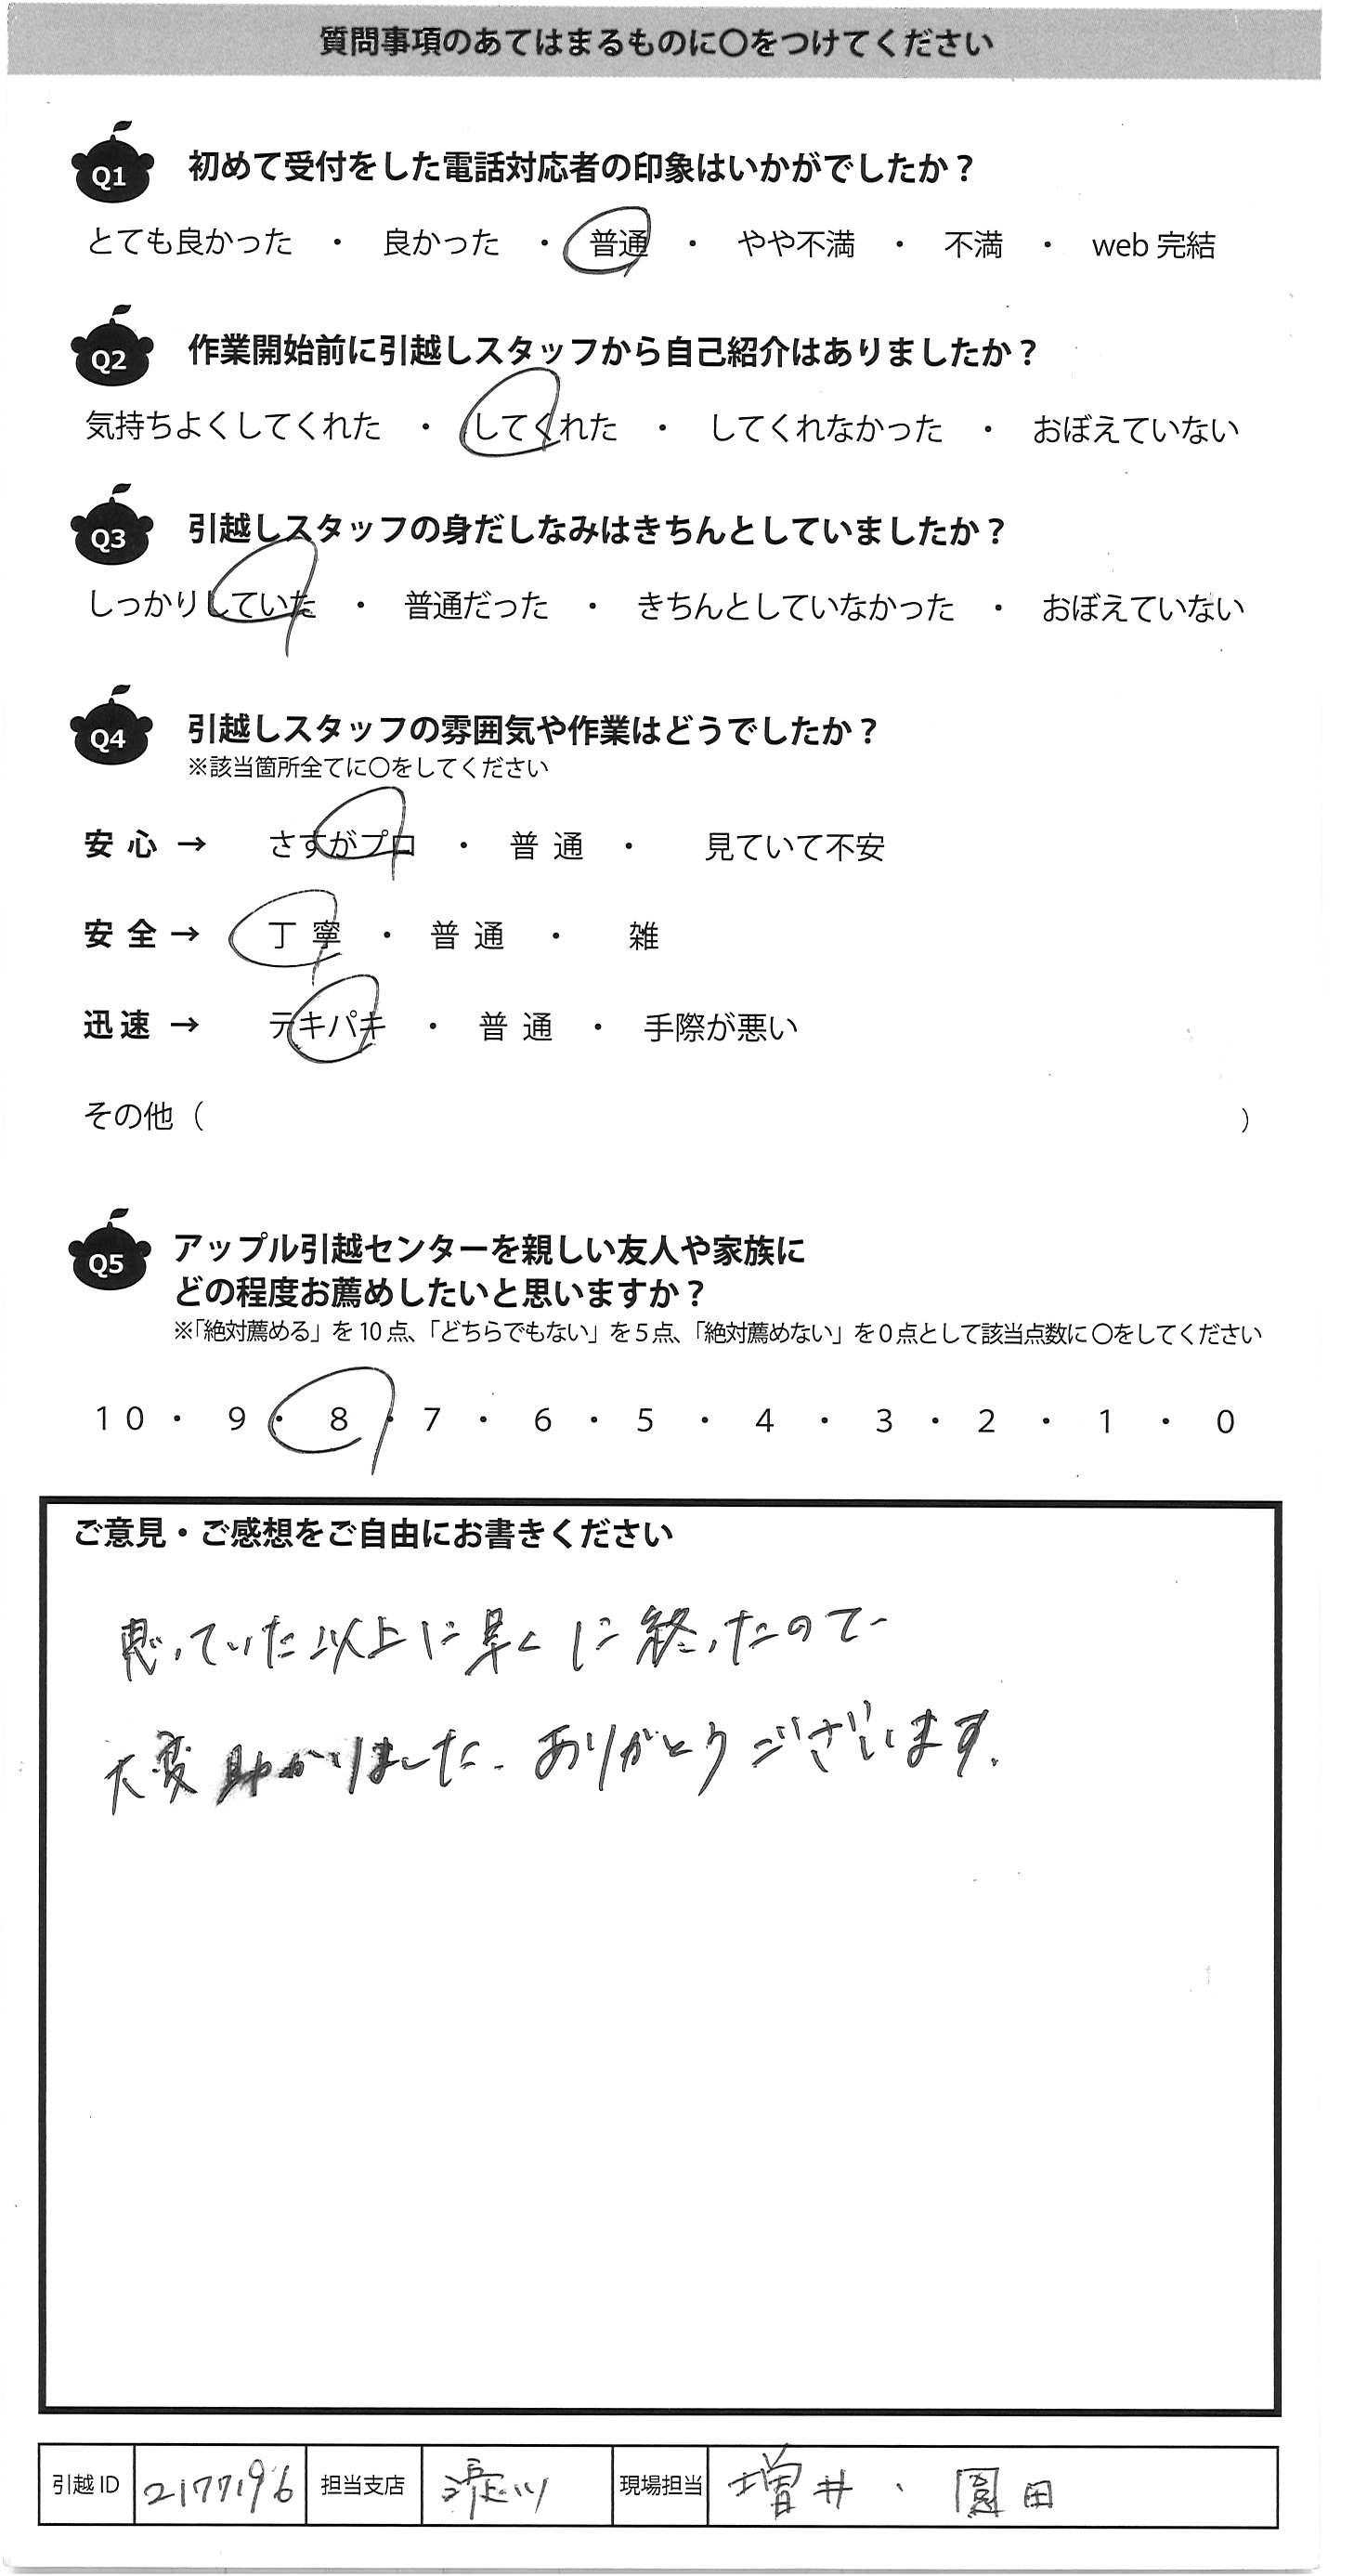 質問事項のあてはまるものに〇をつけてください
Q1 初めて受付をした電話対応者の印象はいかがでしたか？
とても良かった ・ 良かった ・ 普通 ・ やや不満 ・ 不満 ・ web 完結
Q2 作業開始前に引越しスタッフから自己紹介はありましたか？
気持ちよくしてくれた ・ してくれた ・ してくれなかった ・ おぼえていない
Q3 引越しスタッフの身だしなみはきちんとしていましたか？
しっかりしていた ・ 普通だった ・ きちんとしていなかった ・ おぼえていない
Q4 引越しスタッフの雰囲気や作業はどうでしたか？
※該当箇所全てに〇をしてください
安心 → さすがプロ ・ 普通 ・ 見ていて不安
安全 → 丁寧 ・ 普通 ・ 雑
迅速 → テキパキ ・ 普通 ・ 手際が悪い
その他（ ）
Q5 アップル引越センターを親しい友人や家族に
どの程度お薦めしたいと思いますか？
※「絶対薦める」を 10 点、「どちらでもない」を 5 点、「絶対薦めない」を 0 点として該当点数に 〇をしてください
10 ・ 9 ・ 8 ・ 7 ・ 6 ・ 5 ・ 4 ・ 3 ・ 2 ・ 1 ・ 0
ご意見・ご感想をご自由にお書きください
思っていた以上に早くに終ったので
大変助かりました。ありがとうございます。
引越 ID 2177196 担当支店 淀川 現場担当 増井 、 園田